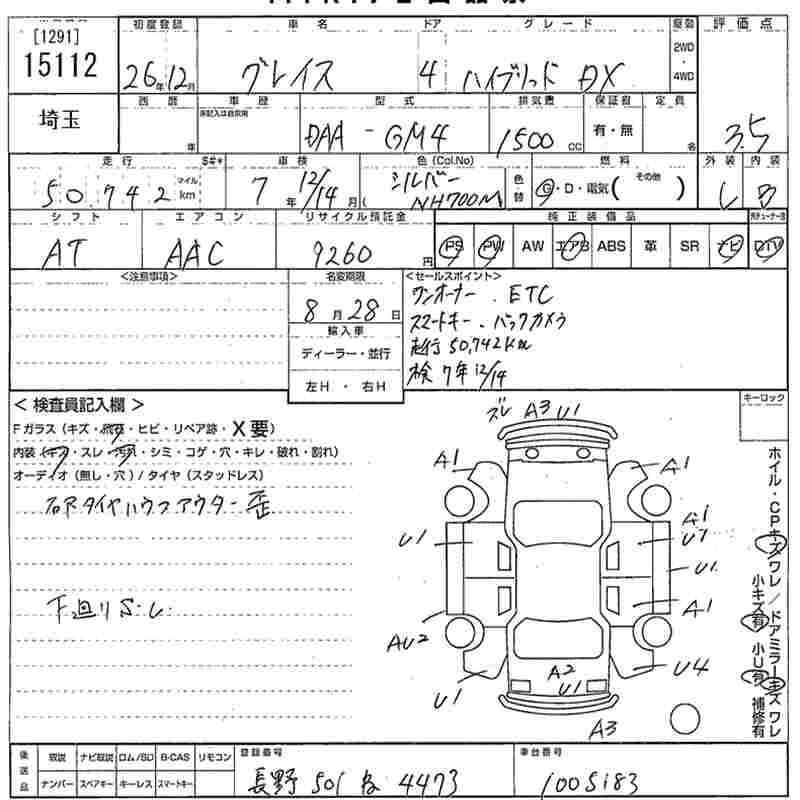 [1291]
15112
埼玉
初度登録 車名 ドア グレード 駆動 評価点
26年12月 グレイス 4 ハイブリッド DX 2WD・4WD 3.5
西暦 車歴 型式 排気量 保証書 定員
年 DAA - GM4 1500cc 有・無 名
走行 S#* 車検 色(Col.No) 燃料 外装 内装
50,742 マイル km 7年12/14月 シルバー NH700M 色・替 G・D・電気(その他 ) B
シフト エアコン リサイクル預託金 純正装備品
AT AAC 9260円 PS PW AW エアB ABS 革 SR ナビ DTV
<注意事項> 名変期限 <セールスポイント>
8月28日
輸入車
ディーラー・並行
左H・右H
ワンオーナー . ETC
スマートキー . バックカメラ
走行 50,742km
検 7年12/14
キーロック
<検査員記入欄>
Fガラス(キズ・飛石・ヒビ・リペア跡・X要)
内装(キズ・スレ・汚れ・シミ・コゲ・穴・キレ・破れ・割れ)
オーディオ(無し・穴)/タイヤ(スタッドレス)
右Fタイヤハウスアウター歪
下廻りS・L
ズレ A3 U1
A1 A1
A1
U1 U1
A1
AU2
A2
U1 U1 U4
A3
ホイル・CPキズワレ/ドアミラーキズワレ
小キズ有 小U有 補修有
後送品 取説 ナビ取説 ロム/SD B-CAS リモコン
ナンバー スペアキー キーレス スマートキー
登録番号 車台番号
長野 501 な 4473 1005183